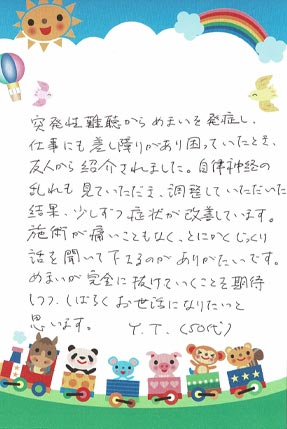 突発性難聴からめまいを発症し、
仕事にも差し障りがあり困っていたとき、
友人から紹介されました。自律神経の
乱れも見ていただき、調整していただいた
結果、少しずつ症状が改善しています。
施術が痛いこともなく、とにかくじっくり
話を聞いて下さるのがありがたいです。
めまいが完全に抜けていくことを期待
しつつ、しばらくお世話になりたいと
思います。 Y.T.(50代)